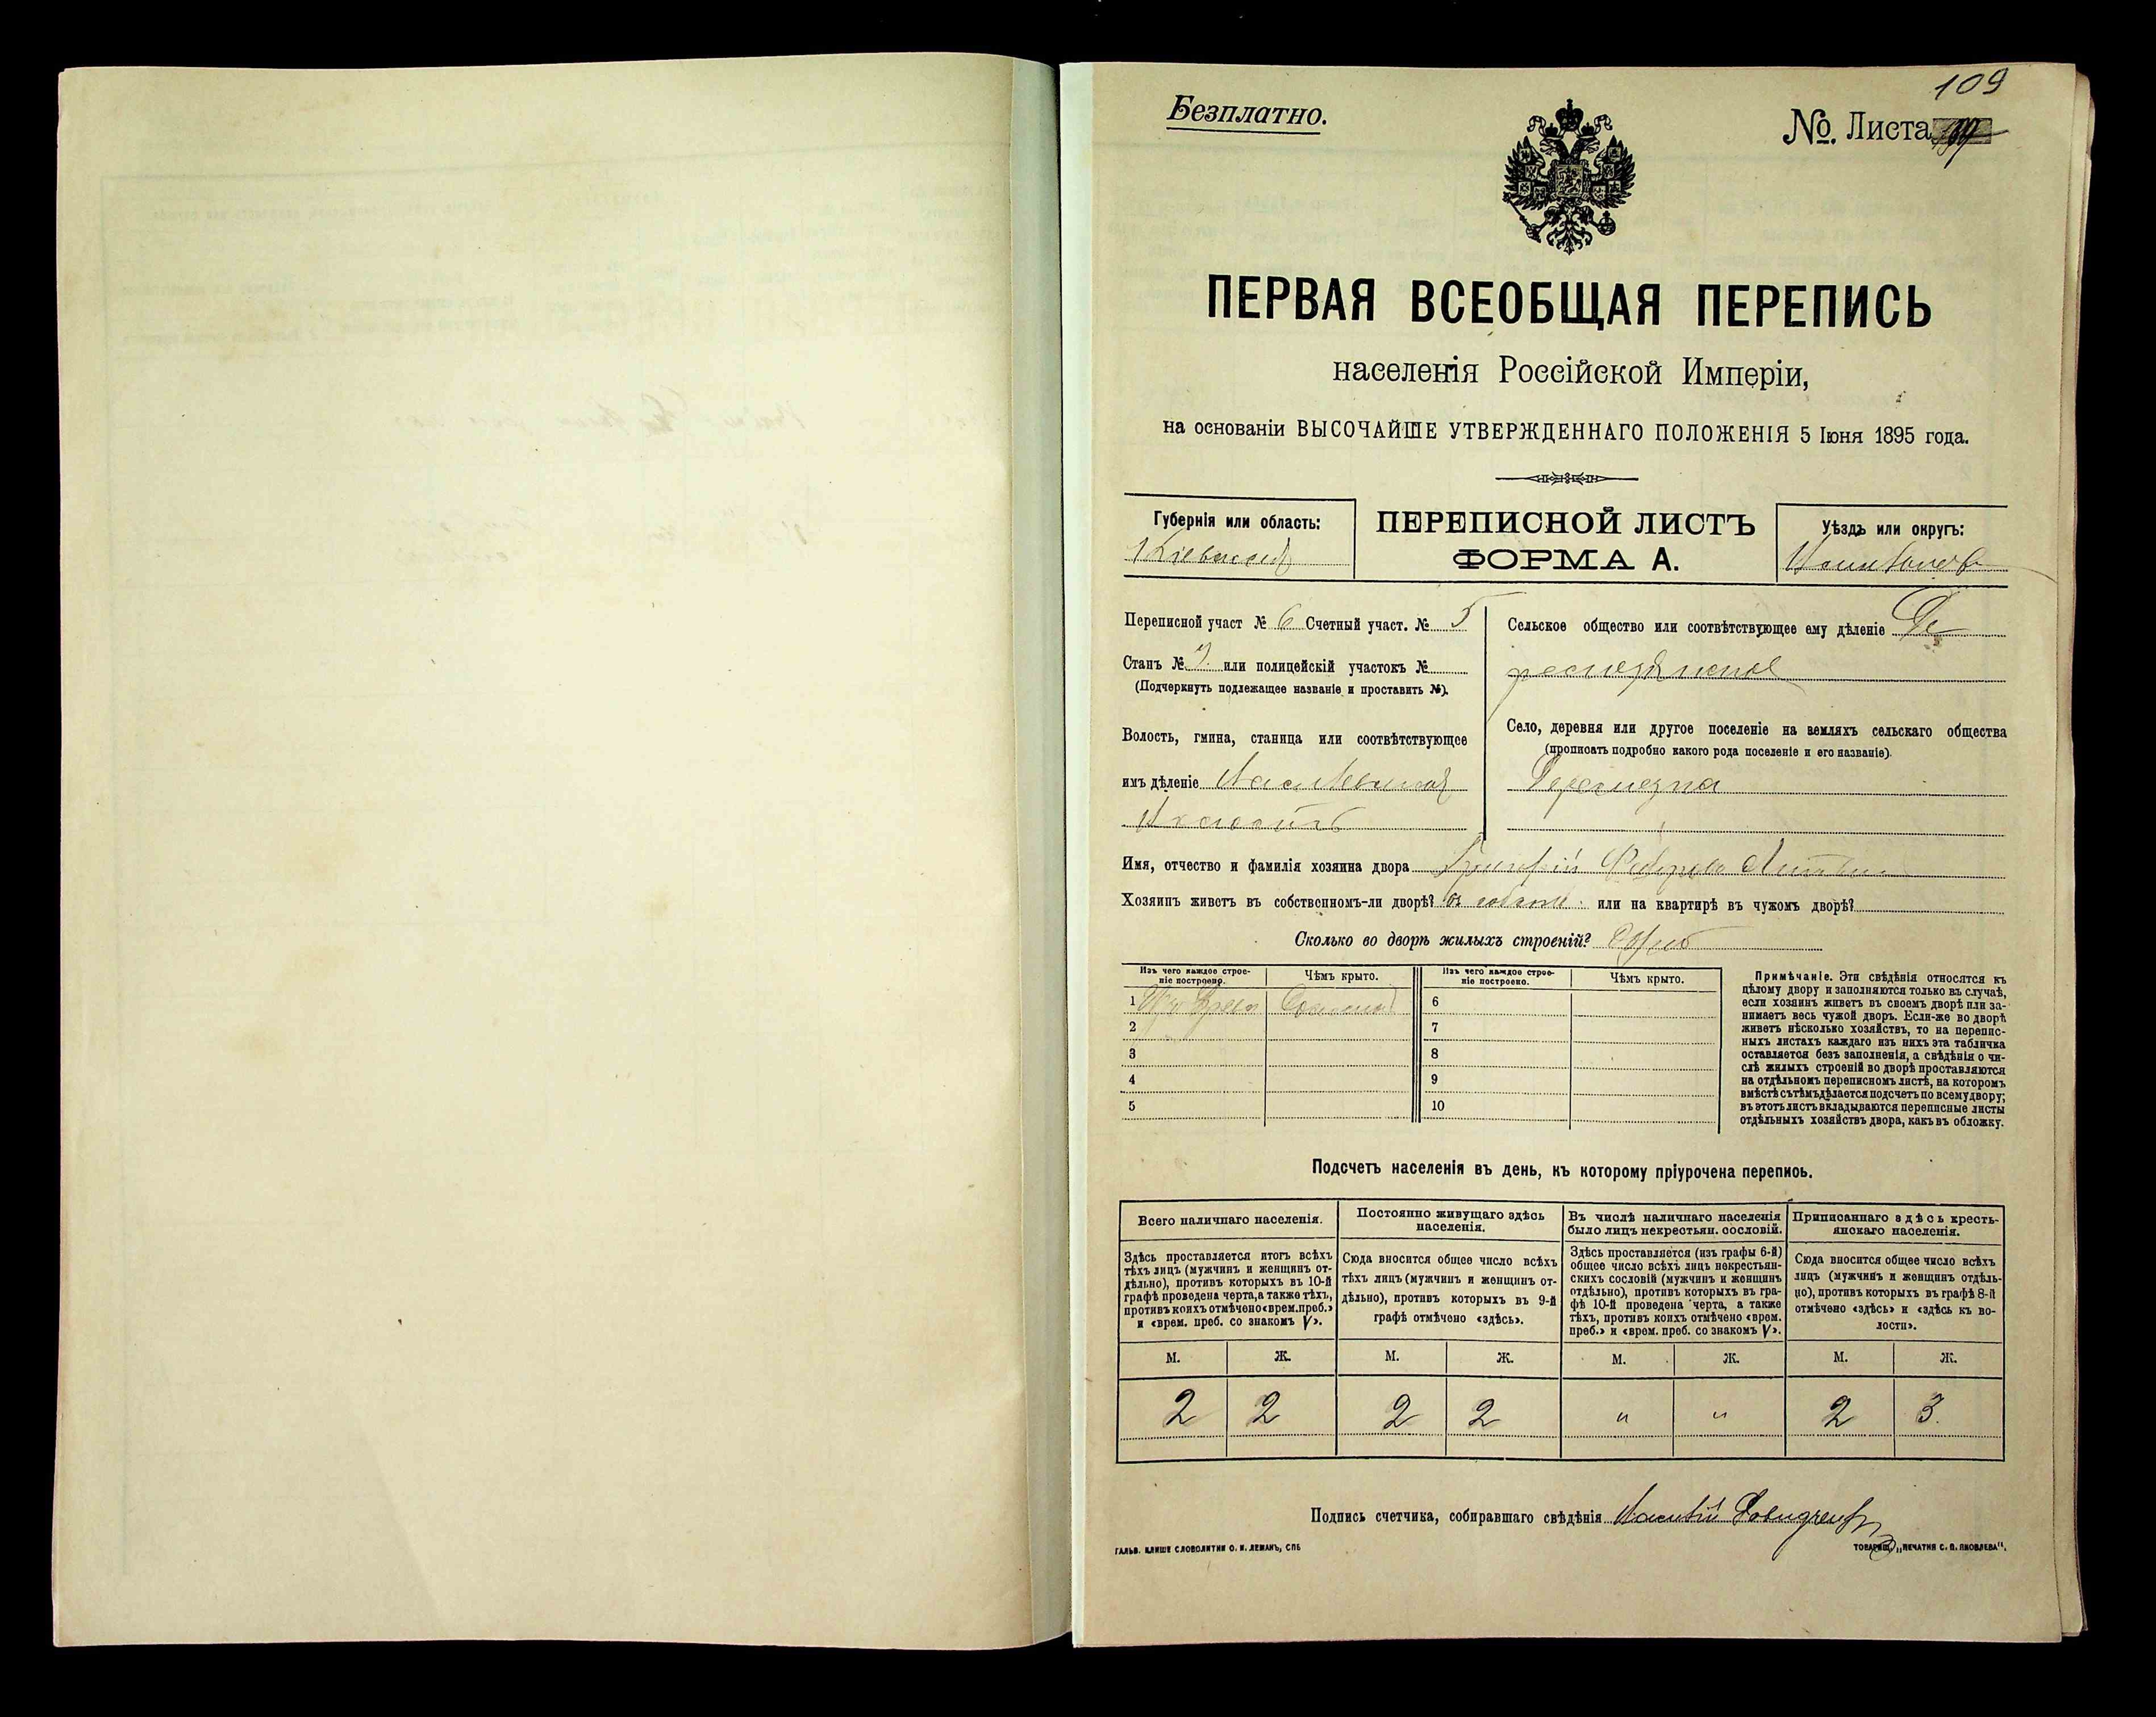 109
Безплатно.
№ Листа
ПЕРВАЯ ВСЕОБЩАЯ ПЕРЕПИСЬ
населенія Россійской Имперіи,
на основаніи ВЫСОЧАЙШЕ УТВЕРЖДЕННАГО ПОЛОЖЕНІЯ 5 Іюня 1895 года.
Губернія или область:
Кіевская
ПЕРЕПИСНОЙ ЛИСТЪ
ФОРМА А.
Уѣздъ или округъ:
Переписной участ № 6 Счетный участ. № 5
Станъ № или полицейскій участокъ №
(Подчеркнуть подлежащее названіе и проставить №).
Волость, гмина, станица или соотвѣтствующее
имъ дѣленіе
Сельское общество или соотвѣтствующее ему дѣленіе
Село, деревня или другое поселеніе на земляхъ сельскаго общества
(прописать подробно какого рода поселеніе и его названіе).
Имя, отчество и фамилія хозяина двора Григорій
Хозяинъ живетъ въ собственномъ-ли дворѣ? или на квартирѣ въ чужомъ дворѣ?
Сколько во дворѣ жилыхъ строеній?
Изъ чего каждое строе-
ніе построено.
Чѣмъ крыто.
Изъ чего каждое строе-
ніе построено.
Чѣмъ крыто.
1
2
3
4
5
6
7
8
9
10
Примѣчаніе. Эти свѣдѣнія относятся къ
цѣлому двору и заполняются только въ случаѣ,
если хозяинъ живетъ въ своемъ дворѣ или за-
нимаетъ весь чужой дворъ. Если-же во дворѣ
живетъ нѣсколько хозяйствъ, то на перепис-
ныхъ листахъ каждаго изъ нихъ эта табличка
оставляется безъ заполненія, а свѣдѣнія о чи-
слѣ жилыхъ строеній во дворѣ проставляются
на отдѣльномъ переписномъ листѣ, на которомъ
вмѣстѣ съ тѣмъ дѣлается подсчетъ по всему двору;
въ этотъ листъ вкладываются переписные листы
отдѣльныхъ хозяйствъ двора, какъ въ обложку.
Подсчетъ населенія въ день, къ которому пріурочена перепись.
Всего наличнаго населенія.
Здѣсь проставляется итогъ всѣхъ
тѣхъ лицъ (мужчинъ и женщинъ от-
дѣльно), противъ которыхъ въ 10-й
графѣ проведена черта, а также тѣхъ,
противъ коихъ отмѣчено «врем. преб.»
и «врем. преб. со знакомъ V».
Постоянно живущаго здѣсь
населенія.
Сюда вносится общее число всѣхъ
тѣхъ лицъ (мужчинъ и женщинъ от-
дѣльно), противъ которыхъ въ 9-й
графѣ отмѣчено «здѣсь».
Въ числѣ наличнаго населенія
было лицъ некрестьян. сословій.
Здѣсь проставляется (изъ графы 6-й)
общее число всѣхъ лицъ некрестьян-
скихъ сословій (мужчинъ и женщинъ
отдѣльно), противъ которыхъ въ гра-
фѣ 10-й проведена черта, а также
тѣхъ, противъ коихъ отмѣчено «врем.
преб.» и «врем. преб. со знакомъ V».
Приписаннаго здѣсь кресть-
янскаго населенія.
Сюда вносится общее число всѣхъ
лицъ (мужчинъ и женщинъ отдѣль-
но), противъ которыхъ въ графѣ 8-й
отмѣчено «здѣсь» и «здѣсь къ во-
лости».
М. Ж. М. Ж. М. Ж. М. Ж.
2 2 2 2 " " 2 3.
Подпись счетчика, собиравшаго свѣдѣнія
ГАЛЬВ. КЛИШЕ СЛОВОЛИТНИ О. И. ЛЕМАНЪ, СПБ
ТОВАРИЩ. „ПЕЧАТНЯ С. П. ЯКОВЛЕВА“.